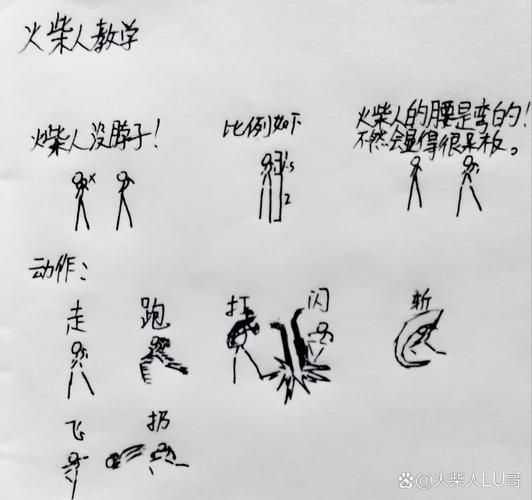 火柴人教学
火柴人没脖子！
比例如下
火柴人的腰是弯的！
不然会显得很呆板。
1.5
2
动作：
走
跑
打
闪
斩
飞
扔
@火柴人LU哥